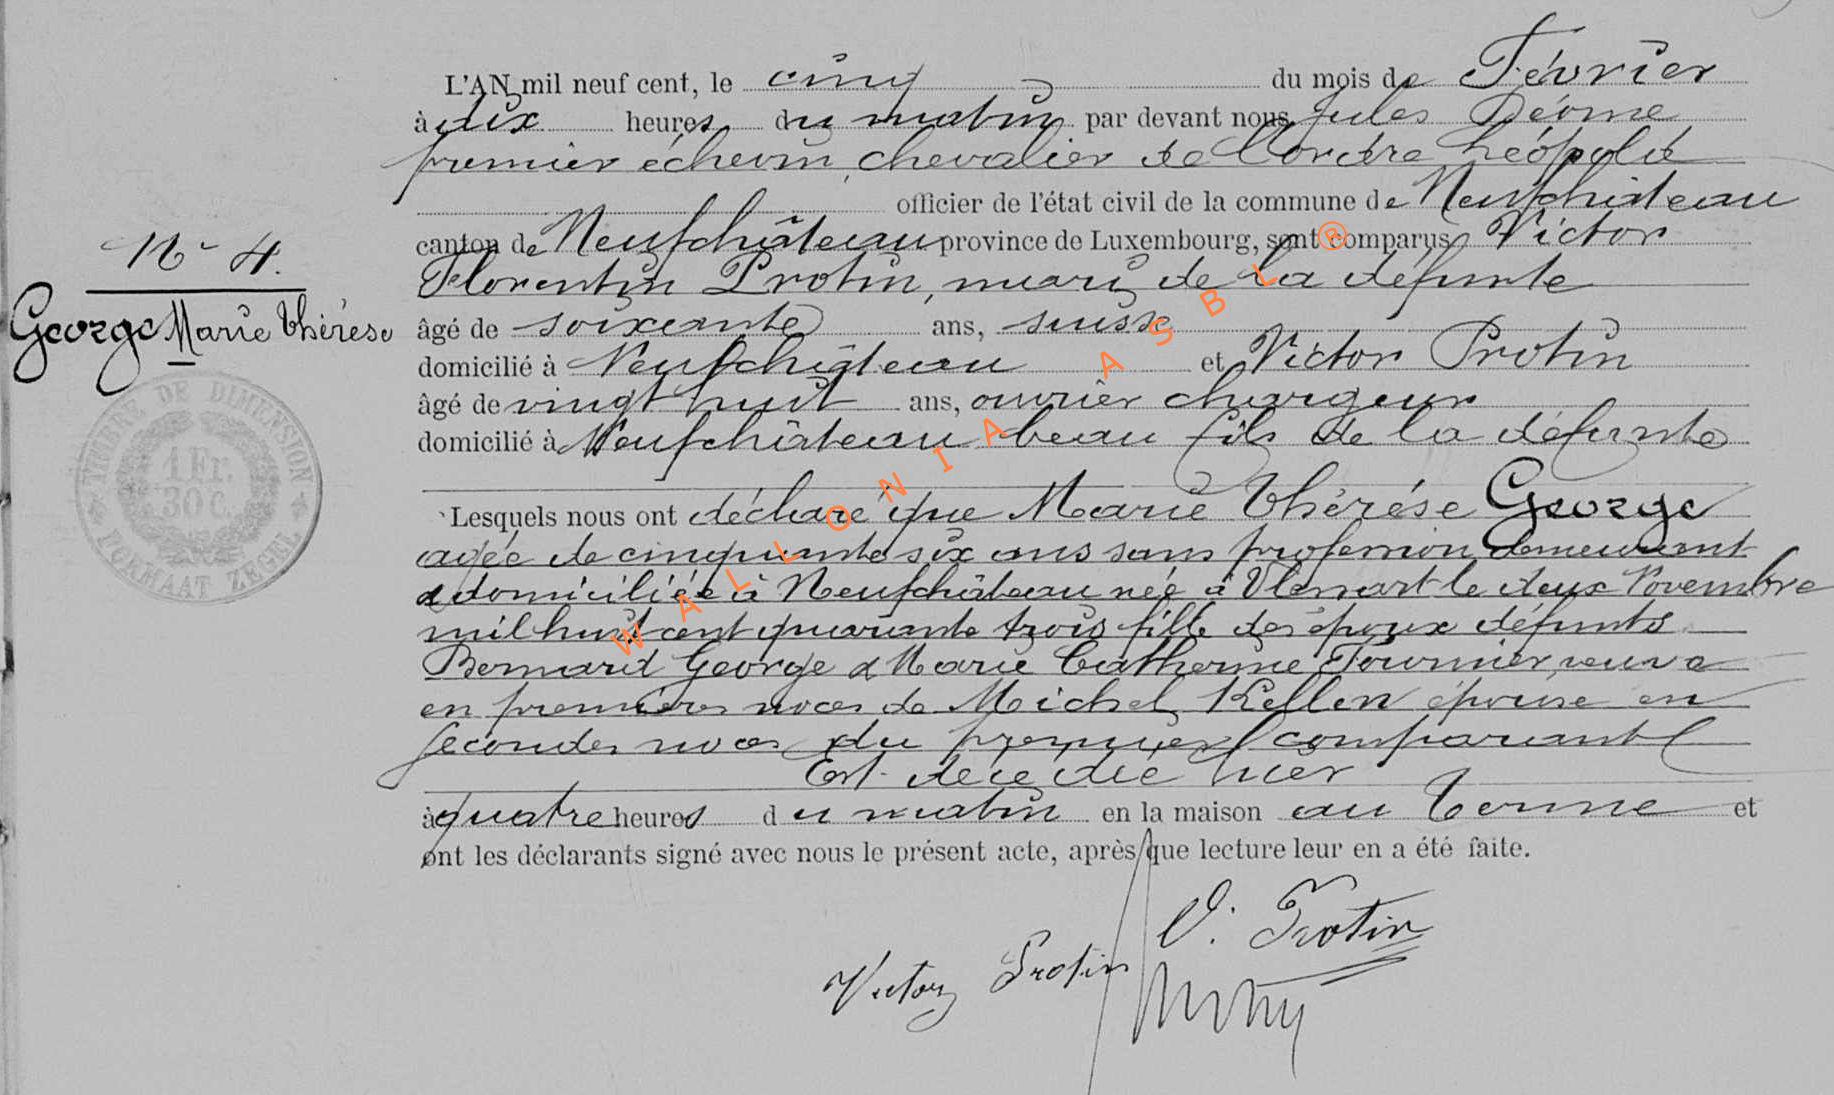 L'AN mil neuf cent, le cinq du mois de Février
à dix heures du matin par devant nous Jules Déome
premier échevin, chevalier de l'ordre Léopold
officier de l'état civil de la commune de Neufchâteau
canton de Neufchâteau province de Luxembourg, sont comparus Victor
N° 4.
Florentin Protin, mari de la défunte
George Marie Thérèse
âgé de soixante ans, suisse
domicilié à Neufchâteau et Victor Protin
âgé de vingt huit ans, ouvrier chargeur
domicilié à Neufchâteau beau fils de la défunte
TIMBRE DE DIMENSION
1 Fr.
30 C.
FORMAAT ZEGEL
Lesquels nous ont déclaré que Marie Thérèse George
agée de cinquante six ans sans profession demeurant
& domiciliée à Neufchâteau née à Vlessart le deux Novembre
mil huit cent quarante trois fille des époux défunts
Bernard George & Marie Catherine Fournier, veuve
en premières noces de Michel Kellen épouse en
secondes noces du premier comparant
Est décédée hier
à quatre heures du matin en la maison au Terme et
ont les déclarants signé avec nous le présent acte, après que lecture leur en a été faite.
V. Protin
Victor Protin
WALLONIA ASBL ®